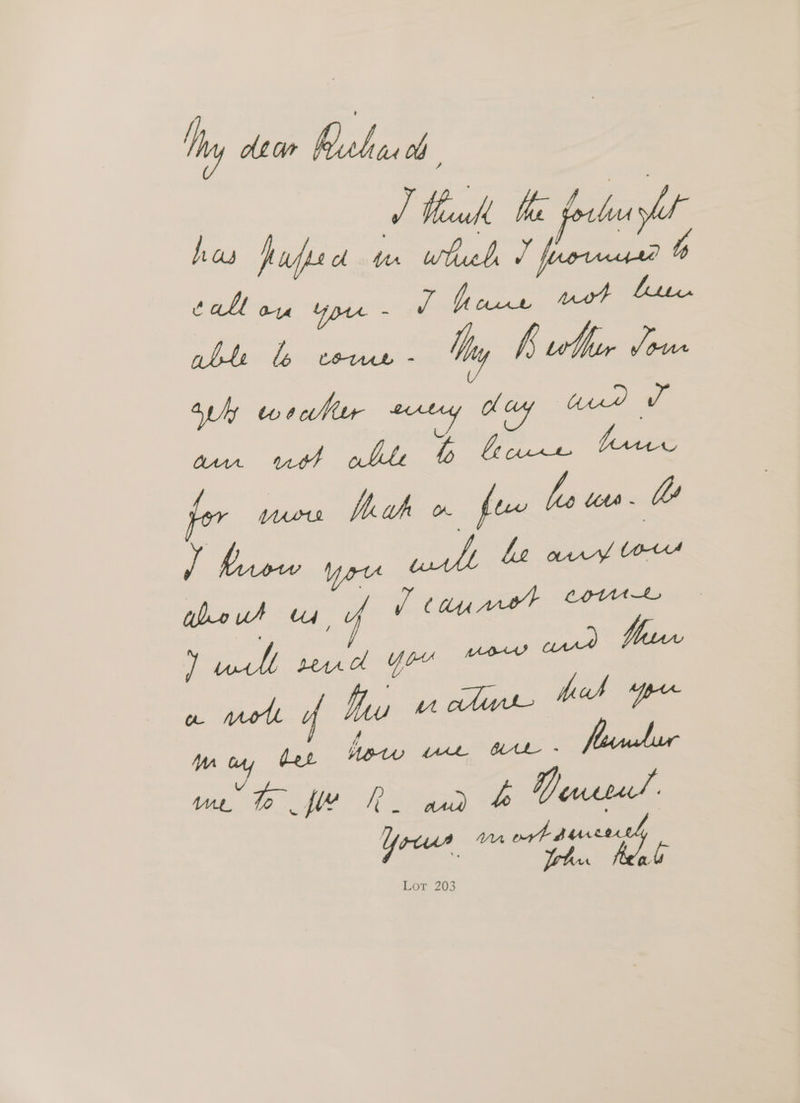 My dear Richards,
I think the fortnight
has passed in which I promised to
call on you - I have not been
able to come - My Brother Tom
gets weaker every day and I
am not able to leave him
for more than a few hours. As
I know you will be anxious
about us, if I cannot come
I will send you now and then
a note of this nature that you
may see how we are - Remember
me to Mrs R. and to Vincent.
Yours most sincerely
John Keats
LOT 203